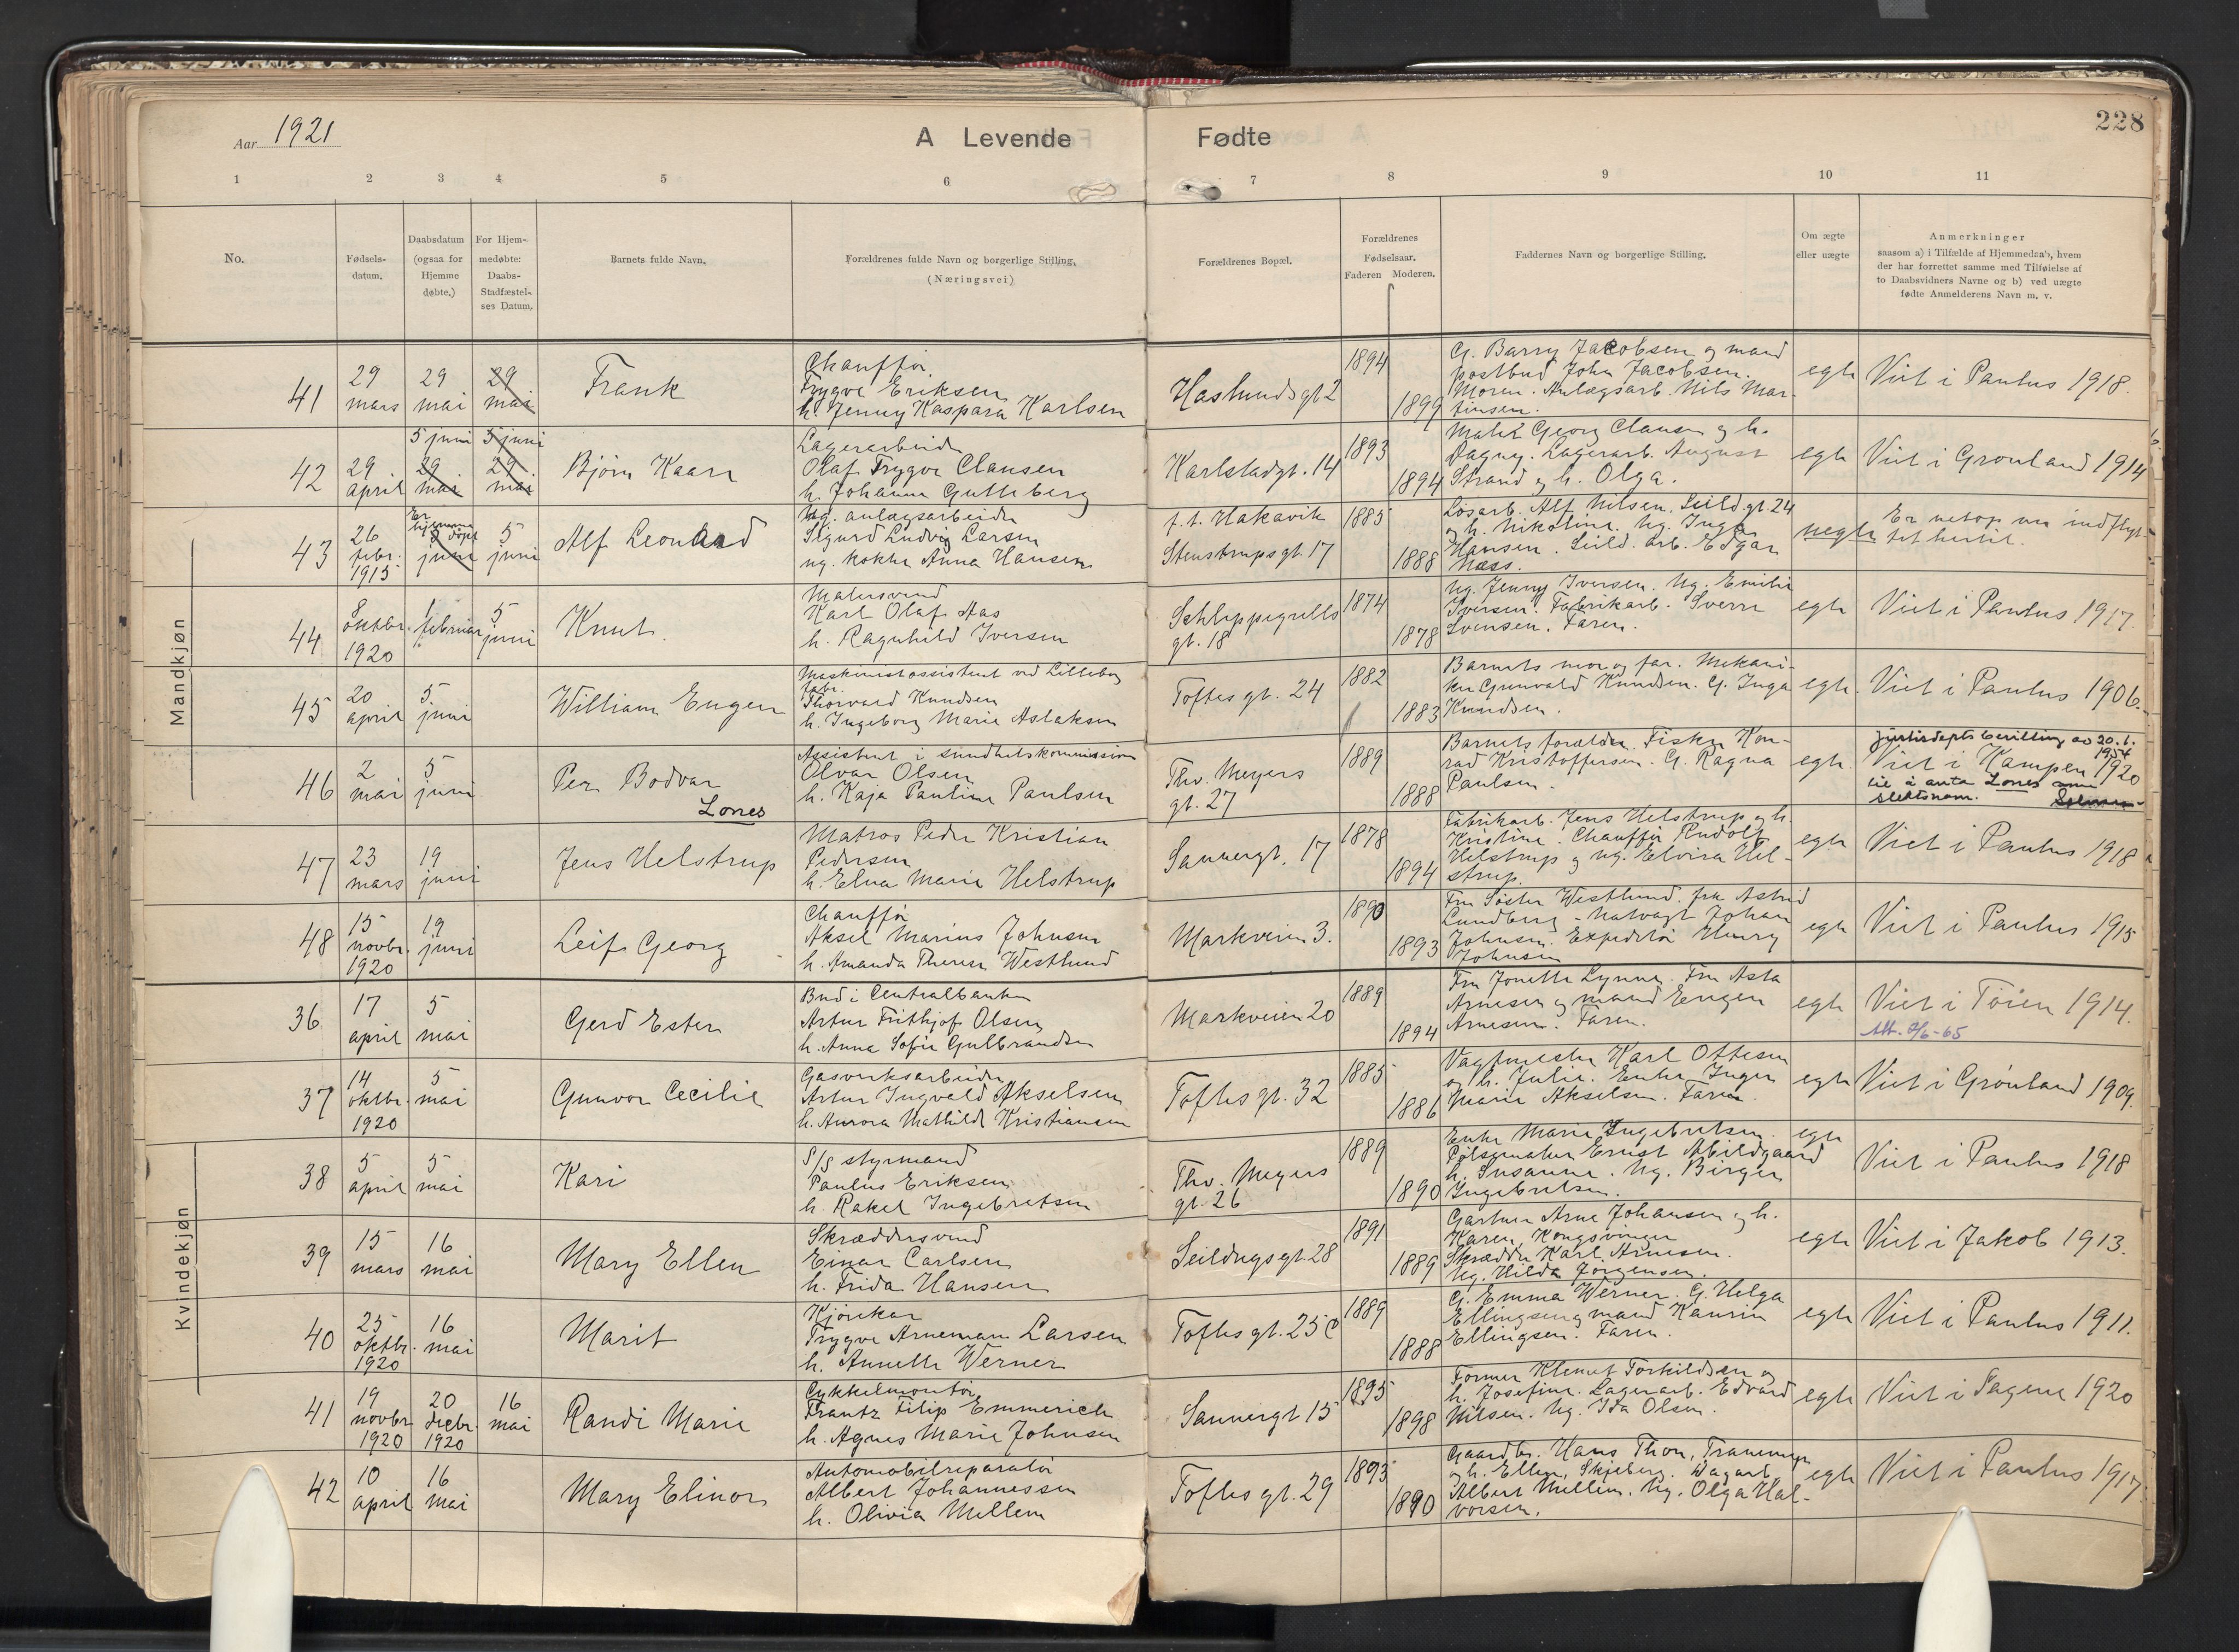 Aar 1921
A Levende Fødte
228
1 2 3 4 5 6 7 8 9 10 11
No.
Fødsels-
datum.
Daabsdatum
(ogsaa for
Hjemme
døbte.)
For Hjem-
medøbte:
Daabs-
Stadfæstel-
ses Datum.
Barnets fulde Navn.
Forældrenes fulde Navn og borgerlige Stilling.
(Næringsvei)
Forældrenes Bopæl.
Forældrenes
Fødselsaar.
Faderen Moderen.
Faddernes Navn og borgerlige Stilling.
Om ægte
eller uægte
Anmerkninger
saasom a) i Tilfælde af Hjemmedaab, hvem
der har forrettet samme med Tilføielse af
to Daabsvidners Navne og b) ved uægte
fødte Anmelderens Navn m. v.
Mandkjøn
41
29
mars
29
mai
29
mai
Frank
Chauffør
Trygve Eriksen
h. Jenny Kaspara Karlsen
Haslundsgt 2
1894
1899
G. Barry Jacobsen og mand
postbud John Jacobsen.
Moren. Anlægsarb. Nils Mar-
tinsen.
egte
Viet i Paulus 1918.
42
29
april
5 juni
29
mai
5 juni
29
mai
Bjørn Kaare
Lagerarbeider
Olaf Trygve Clausen
h. Johanne Gutteberg
Karlstadgt. 14
1893
1894
Maler Georg Clausen og h.
Dagny. Lagerarb. August
Strand og h. Olga.
egte
Viet i Grønland 1914
43
26
febr.
1915
Er
hjemme
døpt
5
juni
5
juni
Alf Leonard
Ug. anlægsarbeider
Sigurd Ludvig Larsen
ug. kokke Anna Hansen
f. t. Hakavik
Stenstrupsgt. 17
1885
1888
Løsarb. Alf Nilsen, Seildgt. 24
og h. Nikoline. Ug. Inga
Hansen. Seild. arb. Edgar
Næss.
uegte
Er netop nu indflyt-
tet hertil.
44
8
oktbr.
1920
1
februar
5
juni
Knut.
Malersvend
Karl Olaf Aas
h. Ragnhild Iversen
Schleppegrells
gt. 18
1874
1878
Ug. Jenny Iversen. Ug. Emilie
Iversen. Fabrikarb. Sverre
Svensen. Faren.
egte
Viet i Paulus 1917.
45
20
april
5
juni
William Eugen
Maskinistassistent ved Lilleborg
fabr.
Thorvald Knudsen
h. Ingeborg Marie Aslaksen
Toftesgt. 24
1882
1883
Barnets mor og far. Mekani-
ker Gunvald Knudsen. G. Inga
Knudsen.
egte.
Viet i Paulus 1906.
46
2
mai
5
juni
Per Bodvar
Lores
Assistent i sundhetskommission
Olvar Olsen
h. Kaja Pauline Paulsen
Thv. Meyers
gt. 27
1889
1888
Barnets forældre. Fisker Kon-
rad Kristoffersen. G. Ragna
Paulsen.
egte.
Justisdepts bevilling av 20.1.
1954
Viet i Kampen 1920
til å anta Lores som
slektsnavn.
47
23
mars
19
juni
Jens Helstrup
Matros Peder Kristian
Pedersen
h. Elna Marie Helstrup
Sannergt. 17
1878
1894
Fabrikarb. Jens Helstrup og h.
Kristine. Chauffør Rudolf
Helstrup og ug. Elvira Hel-
strup.
egte
Viet i Paulus 1918
48
15
novbr.
1920
19
juni
Leif Georg
Chauffør
Aksel Marius Johnsen
h. Amanda Therese Westlund
Markveien 3.
1890
1893
Fru Søster Westlund. frk Astrid
Lundberg - Natvagt Johan
Johnsen. Expeditør Henry
Johnsen
egte
Viet i Paulus 1915
Kvindekjøn
36
17
april
5
mai
Gerd Ester
Bud i Centralbanken
Artur Frithjof Olsen
h. Anna Sofie Gulbrandsen
Markveien 20
1889
1894
Fru Jonette Lynne. Fru Asta
Arnesen og mand Eugen
Arnesen. Faren.
egte
Viet i Tøien 1914.
Att. 2/6-65
37
14
oktbr.
1920
5
mai
Gunvor Cecilie
Gasverksarbeider
Artur Ingvald Akselsen
h. Aurora Mathilde Kristiansen
Toftesgt. 32
1885
1886
Vagtmester Karl Ottesen
og h. Julie. Enke Inger
Marie Akselsen. Faren.
egte
Viet i Grønland 1909.
38
5
april
5
mai
Kari
S/S styrmand
Paulus Eriksen
h. Rakel Ingebretsen
Thv. Meyers
gt. 26
1889
1890
Enke Marie Ingebretsen.
Pølsemaker Ernst Abildgaard
h. Susanne. Ug. Birger
Ingebretsen.
egte
Viet i Paulus 1918
39
15
mars
16
mai
Mary Ellen
Skræddersvend
Einar Carlsen
h. Frida Hansen
Seildugsgt. 28
1891
1889
Gartner Arne Johansen og h.
Karen, Kongsvinger
Skrædder Karl Arnesen.
Ug. Hilda Jørgensen.
egte
Viet i Jakob 1913.
40
25
oktbr.
1920
16
mai
Marit
Kjørekar
Trygve Arneman Larsen
h. Annette Werner
Toftesgt. 25 c
1889
1888
G. Emma Werner. G. Helga
Ellingsen og mand Kaurin
Ellingsen. Faren.
egte
Viet i Paulus 1911.
41
19
novbr
1920
20
decbr.
1920
16
mai
Randi Marie
Cykkelmontør
Frantz Filip Emmerich
h. Agnes Marie Johnsen
Sannergt 15
1895
1898
Former Klemet Torkildsen og
h. Josefine. Lagerarb. Edvard
Nilsen. Ug. Ida Olsen.
egte
Viet i Sagene 1920
42
10
april
16
mai
Mary Elinor
Automobilreparatør
Albert Johannessen
h. Olivia Mellem
Toftesgt. 29
1893
1890
Gaardbr. Hans Thon, Tranemyr
og h. Ellen, Skjeberg.
Albert Mellem. Ug. Olga Hal-
vorsen.
egte
Viet i Paulus 1917.